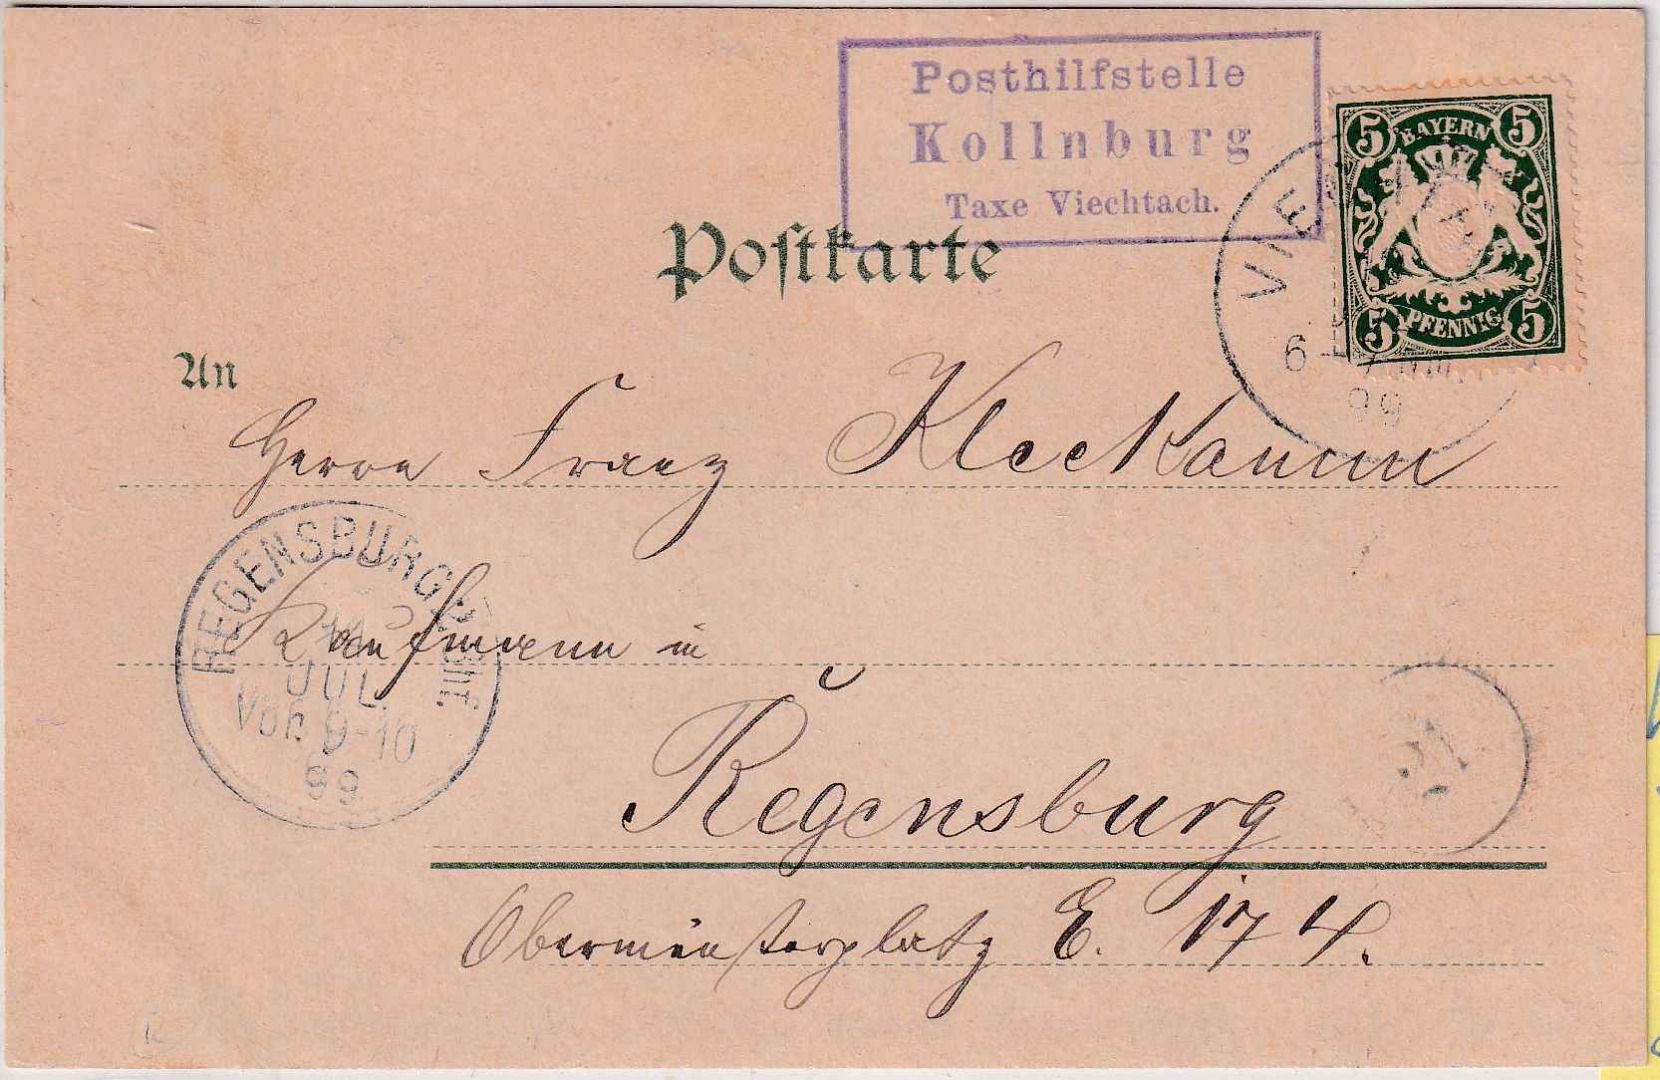 Posthilfstelle
Kollnburg
Taxe Viechtach.
5 BAYERN 5
5 PFENNIG 5
6
99
Postkarte
An
Herrn Franz Kleekamm
Kaufmann in
Regensburg
Obermünsterplatz E. 174.
REGENSBURG
JUL
Vor. 9-10
99
21